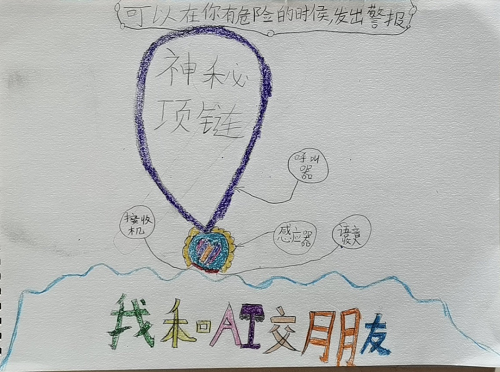 可以在你有危险的时候,发出警报
神秘
项链
呼叫
器
接收
机
感应器
语音
我和AI交朋友